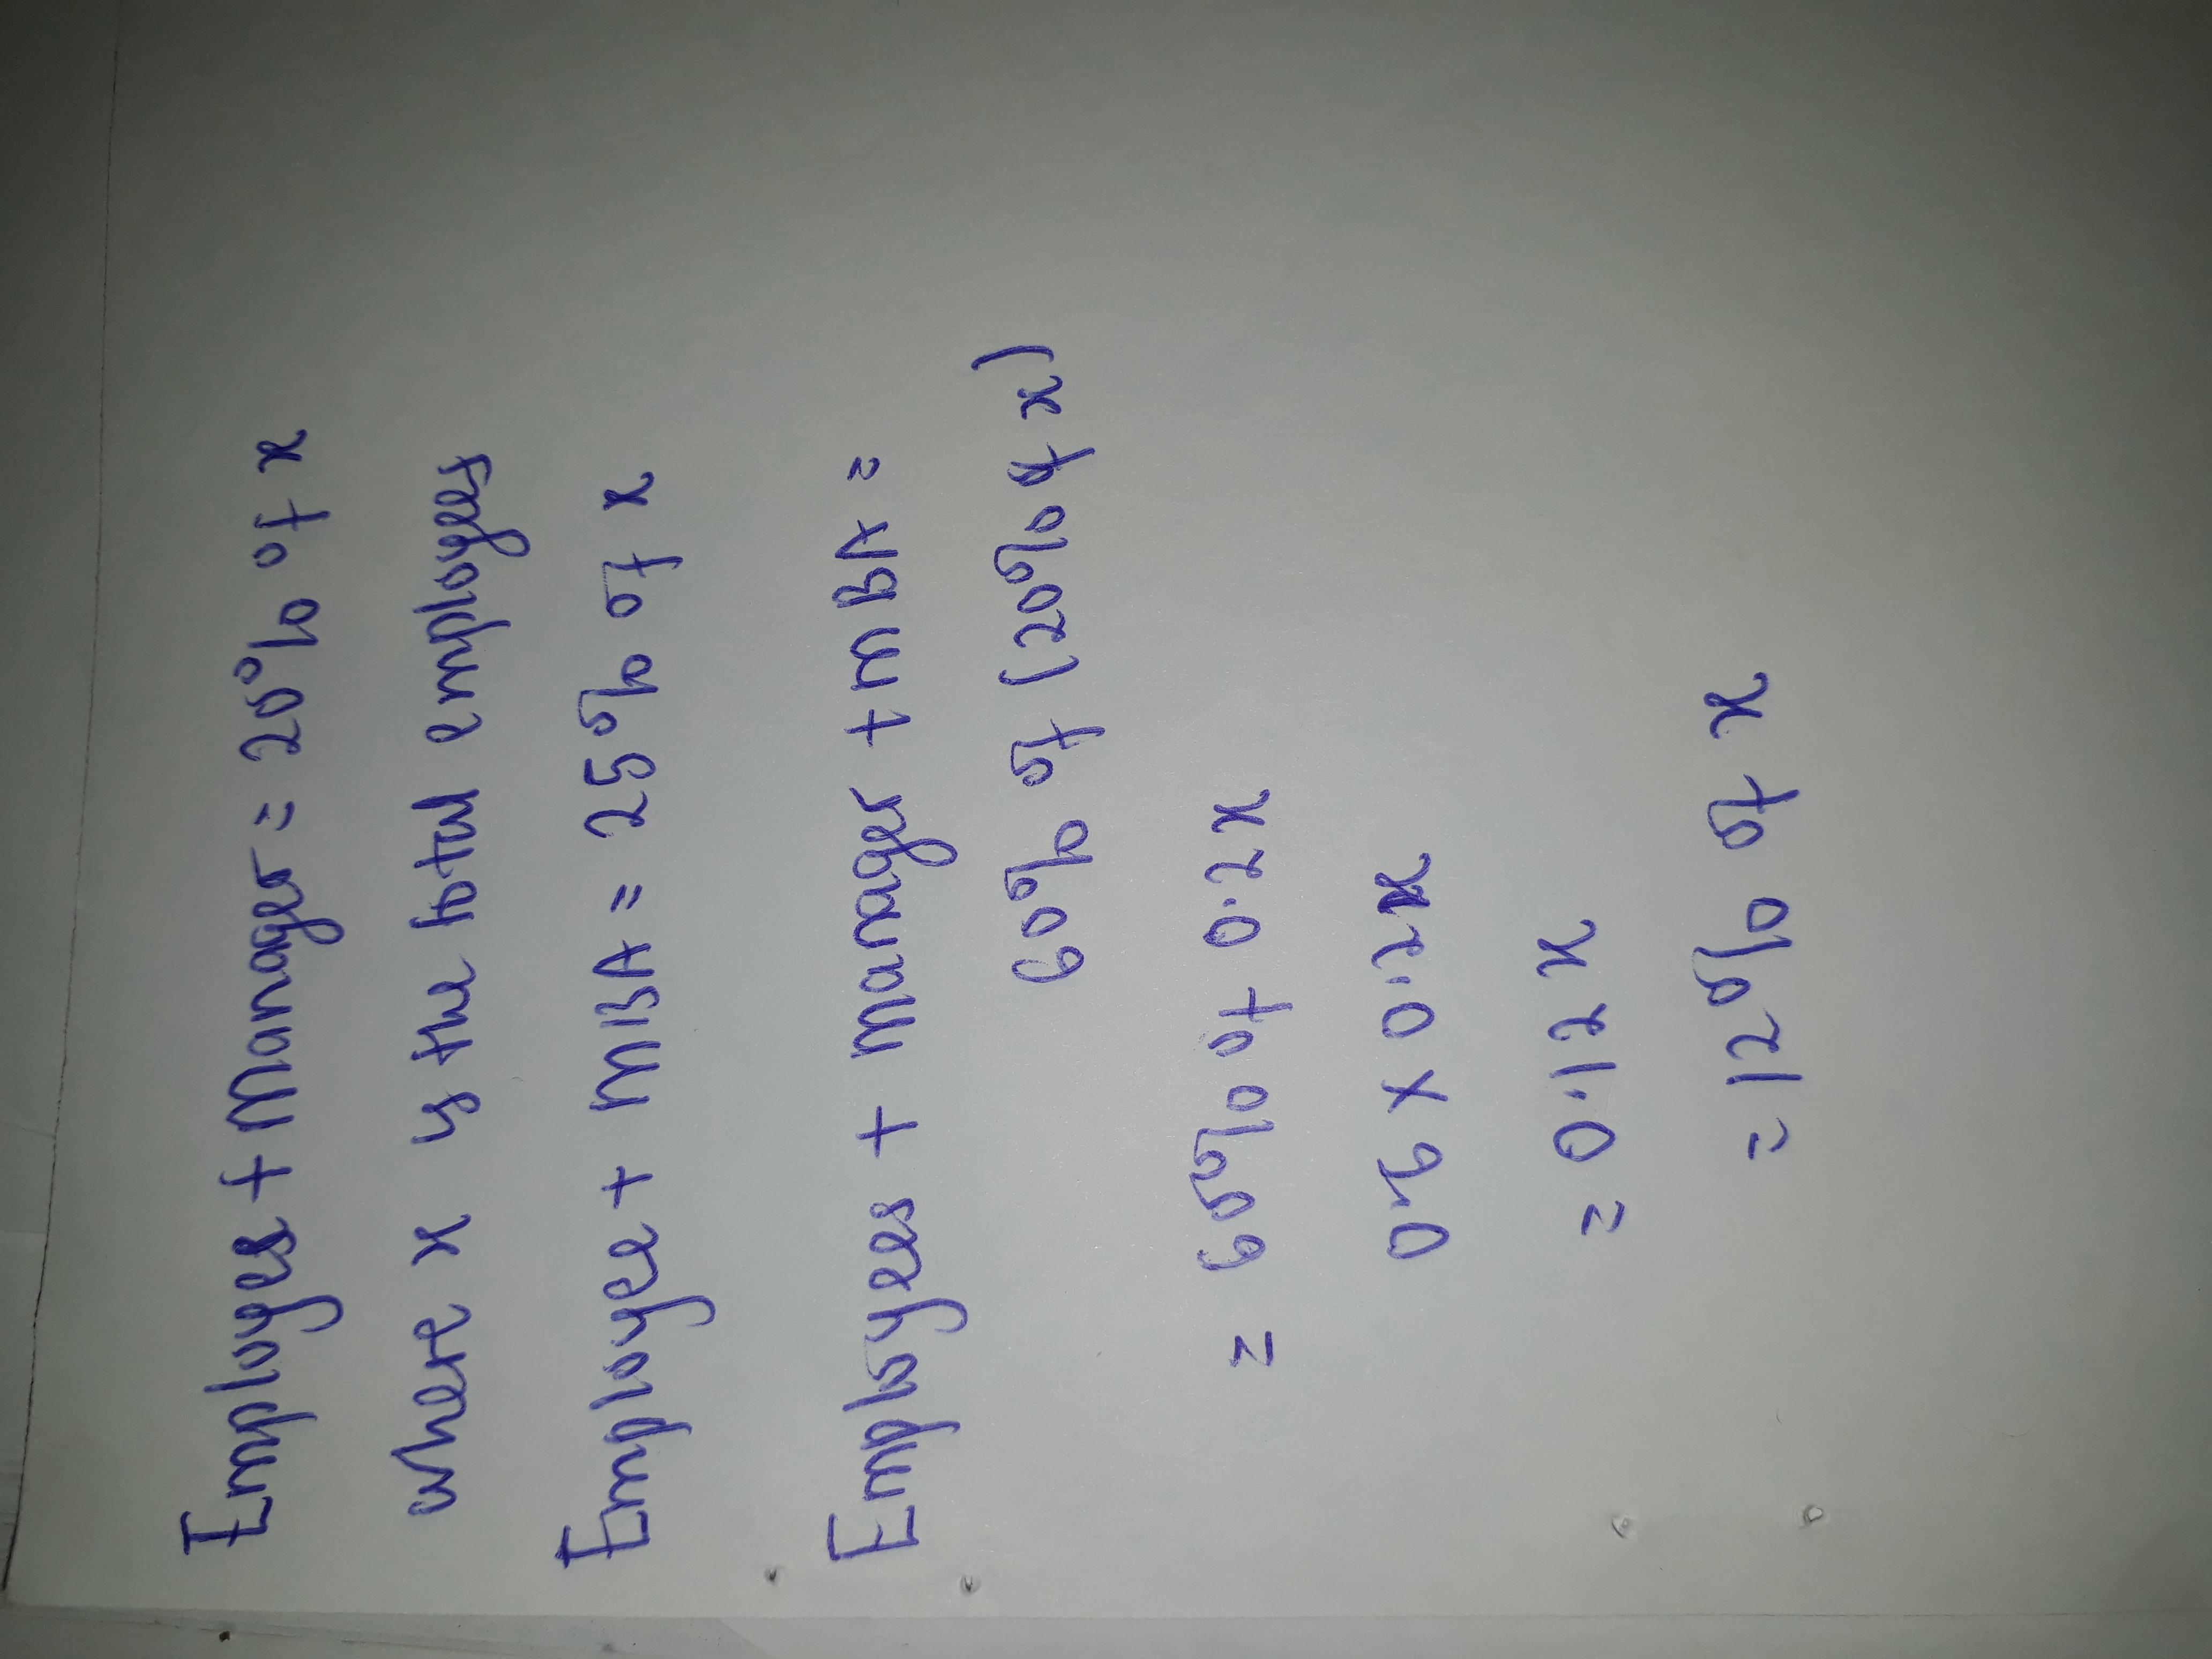 Employees + Manager = 20% of x
where x is the total employees
Employee + MBA = 25% of x
Employees + manager + MBA =
60% of (20% of x)
= 60% of 0.2x
0.6 x 0.2x
= 0.12x
= 12% of x